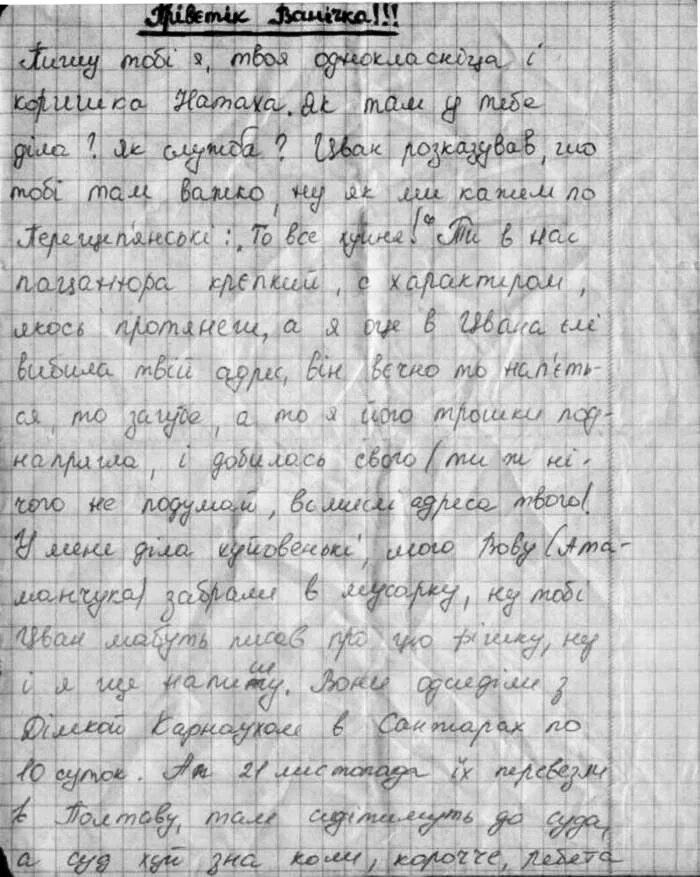 Прівєтік Ванічка!!!
Пишу тобі я, твоя однокласніца і
коришка Натаха. Як там у тебе
діла? Як служба? Цван розказував, шо
тобі там важко, ну як ми кажем по
Перещепянські: "То все хуйня!" Ти в нас
пацанюра крєпкий, с характиром,
якось протянеш, а я оце в Цвана єлі
вибила твій адрес, він вєчно то нап'єть-
ся, то загубе, а то я його трошки под-
напрягла, і добилась свого (ти ж ні-
чого не подумай, в смислі адреса твого).
У мене діла хуйовенькі, мого Вову (Ата-
манчука) забрали в мусарку, ну тобі
Цван мабуть писав про цю фішку, ну
і я ще напишу. Вони одсиділи з
Дімкой Карнаухом в Санжарах по
10 суток. А 21 листопада їх перевезли
в Полтаву, там сидітимуть до суда,
а суд хуй зна коли, корочче, ребята